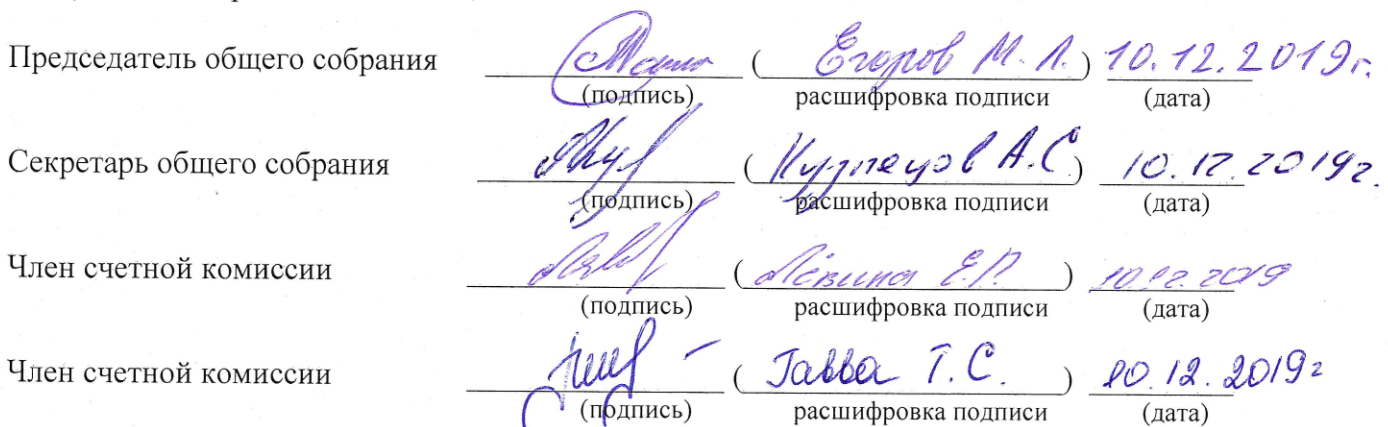 Председатель общего собрания ( Егоров М. Л. ) 10.12.2019г.
(подпись) расшифровка подписи (дата)
Секретарь общего собрания ( Кузнецов А.С. ) 10.12.2019г.
(подпись) расшифровка подписи (дата)
Член счетной комиссии ( Е.П. ) 10.12.2019
(подпись) расшифровка подписи (дата)
Член счетной комиссии ( Гавва Т.С. ) 10.12.2019г
(подпись) расшифровка подписи (дата)